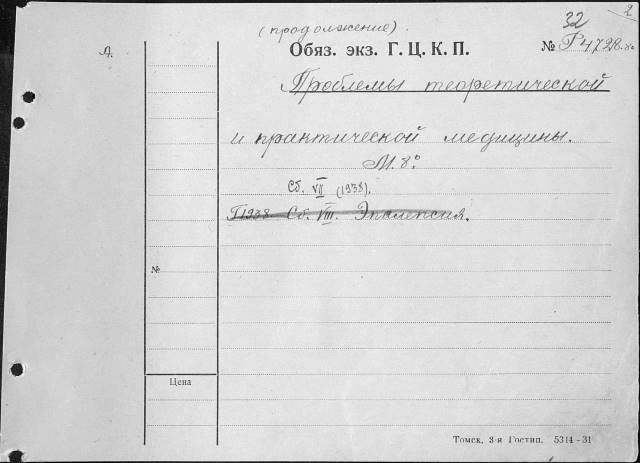 32 2
(продолжение).
А.
Обяз. экз. Г. Ц. К. П. № Р4728.8°
Проблемы теоретической
и практической медицины.
М. 8°
Сб. VII (1938).
Г1938 Сб. VIII. Эпилепсия.
№
Цена
Томск, 3-я Гостип. 5314-31